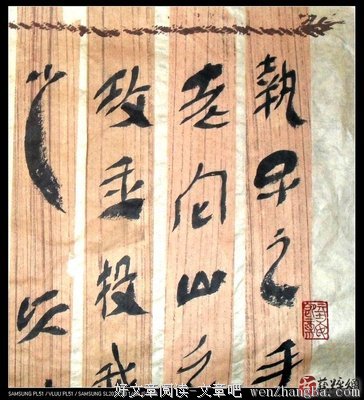 執子之手
老它山之
攻玉投我
SAMSUNG PL51 / VLUU PL51 / SAMSUNG SL20
好文章阅读-文章吧
www.wenzhangba.com